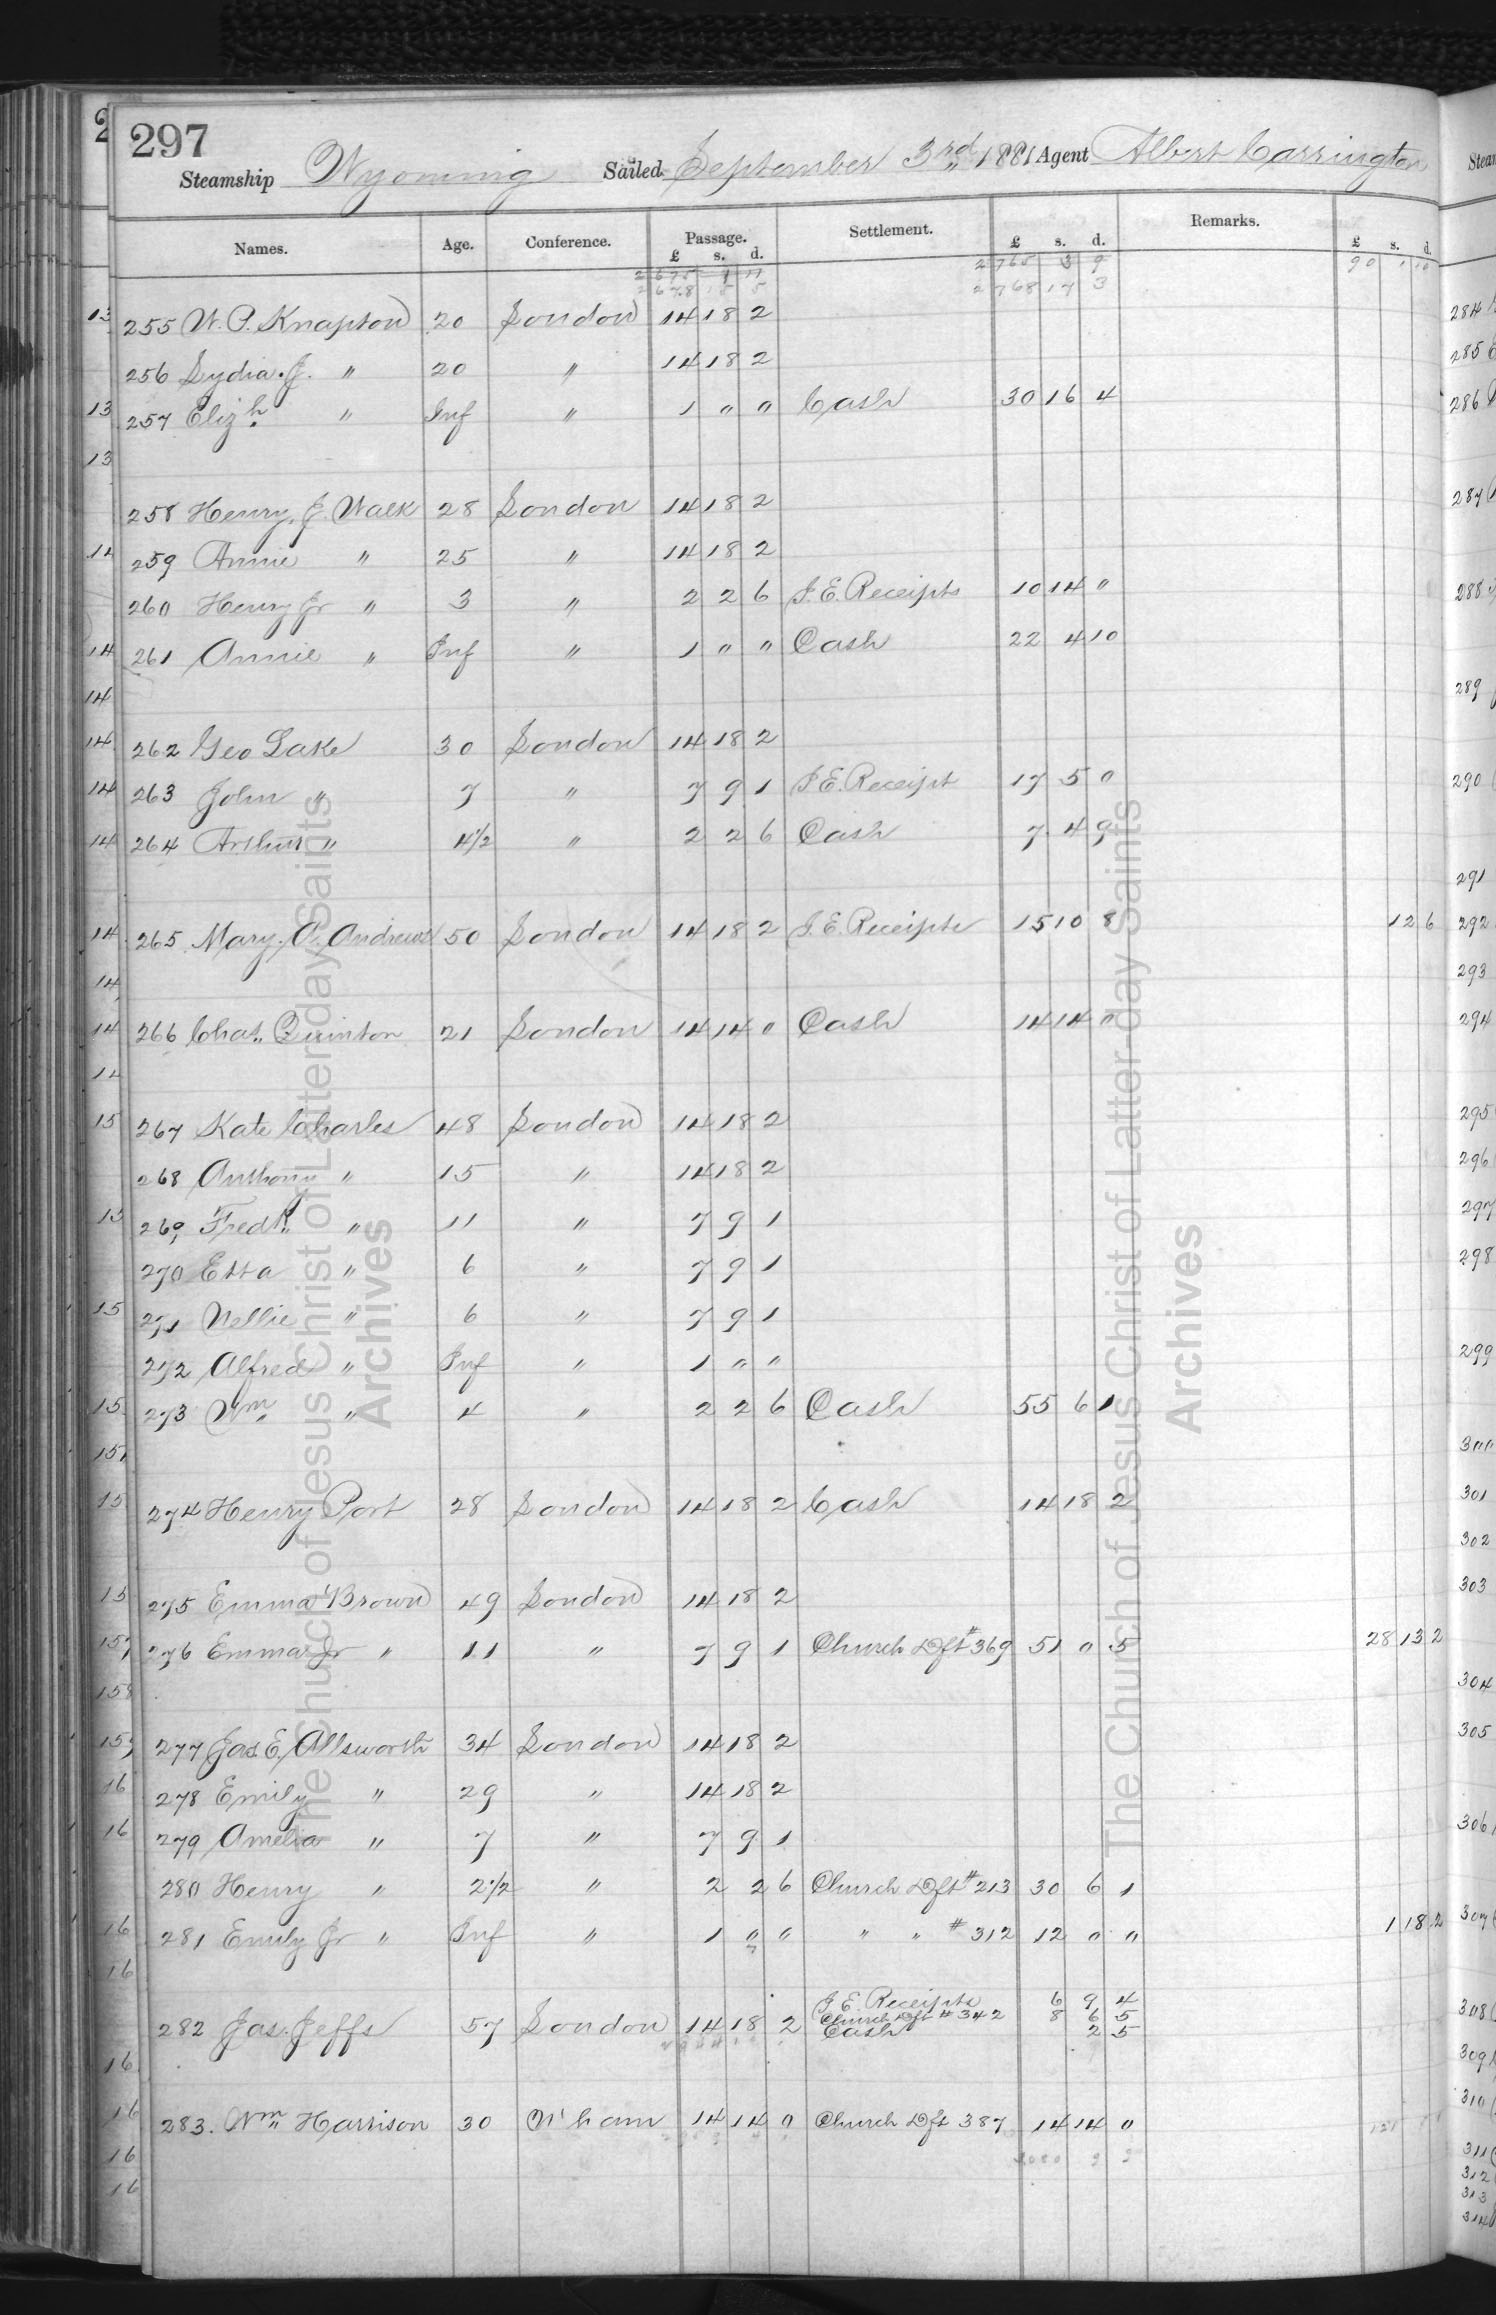 297
Steamship Wyoming Sailed September 3rd 1881 Agent Albert Carrington
Names. Age. Conference. Passage. Settlement. £ s. d. Remarks. £ s. d.
£ s. d.
2765 3 9 90 1 10
2768 17 3
255 W. P. Knapton 20 London 14 18 2
256 Lydia. J. " 20 " 14 18 2
257 Elizh. " Inf " 1 " " Cash 30 16 4
258 Henry. J. Walk 28 London 14 18 2
259 Annie " 25 " 14 18 2
260 Henry Jr " 3 " 2 2 6 I. E. Receipts 10 14 "
261 Annie " Inf " 1 " " Cash 22 4 10
262 Geo Lake 30 London 14 18 2
263 John " 7 " 7 9 1 I E. Receipt 17 5 0
264 Arthur " 4 1/2 " 2 2 6 Cash 7 4 9
265 Mary. A. Andrews 50 London 14 18 2 I. E. Receipts 15 10 8 12 6
266 Chas. Quinton 21 London 14 14 0 Cash 14 14 0
267 Kate Charles 48 London 14 18 2
268 Anthony " 15 " 14 18 2
269 Fredk. " 11 " 7 9 1
270 Etta " 6 " 7 9 1
271 Nellie " 6 " 7 9 1
272 Alfred " Inf " 1 " "
273 Wm. " 4 " 2 2 6 Cash 55 6 1
274 Henry Port 28 London 14 18 2 Cash 14 18 2
275 Emma Brown 49 London 14 18 2
276 Emma Jr " 11 " 7 9 1 Church Dft #369 51 0 5 28 13 2
277 Jas E. Allsworth 34 London 14 18 2
278 Emily " 29 " 14 18 2
279 Amelia " 7 " 7 9 1
280 Henry " 2 1/2 " 2 2 6 Church Dft #213 30 6 1
281 Emily Jr " Inf " 1 " " " " #312 12 " " 1 18 2
I E. Receipts 6 9 4
282 Jas. Jeffs 57 London 14 18 2 Church Dft #342 8 6 5
Cash 2 5
283. Wm. Harrison 30 N'ham 14 14 0 Church Dft 387 14 14 0
The Church of Jesus Christ of Latter-day Saints
Archives
The Church of Jesus Christ of Latter-day Saints
Archives
284
285
286
287
288
289
290
291
292
293
294
295
296
297
298
299
300
301
302
303
304
305
306
307
308
309
310
311
312
313
314